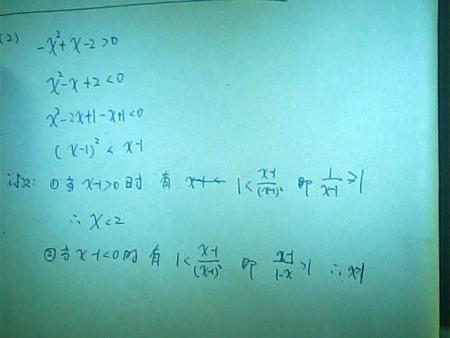 (2) -x²+x-2>0
x²-x+2<0
x²-2x+1-x+1<0
(x-1)² < x-1
讨论: ①当 x-1>0 时 有 1<\frac{x-1}{(x-1)²} 即 \frac{1}{x-1}>1
∴ x<2
②当 x-1<0 时 有 1<\frac{x-1}{(x-1)²} 即 \frac{x-1}{1-x}>1 ∴ x>1